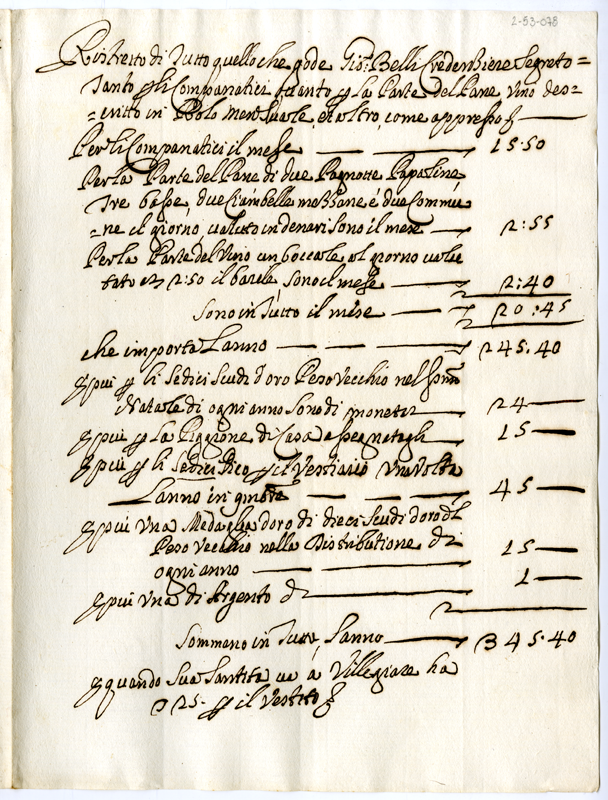 2-53-078
Ristretto di Tutto quello che gode Gio: Belli Credenziere Segreto=
Tanto p li Companatici quanto p la Parte del Pane, vino des=
=critto in Rolo mensuale, et altro, come appresso
Per li Companatici il mese 15:50
Per la Parte del Pane di due Pagnotte Papaline,
Tre basse, due Ciambelle mezzane e due Commu
=ne il giorno, valutto in denari sono il mese 2:55
Per la Parte del Vino un boccale al giorno valu
tato 2:50 il barile sono il mese 2:40
Sono in Tutto il mese 20:45
che importa L'anno 245:40
E piu p li Sedici Scudi d'oro Peso Vecchio nel
Natale di ogni anno sono di moneta 24
E piu p la Piggione di Casa assegnatagli 15
E piu p li p il Vestiario Una Volta
L'anno in 45
E piu Una Medaglia d'oro di dieci Scudi d'oro di
Peso Vecchio nella Distributione di
ogni anno 15
E piu Una di Argento di 1
Sommano in Tutto, L'anno 345:40
E quando Sua Santità va à Villegiare ha
25 p il Vestito